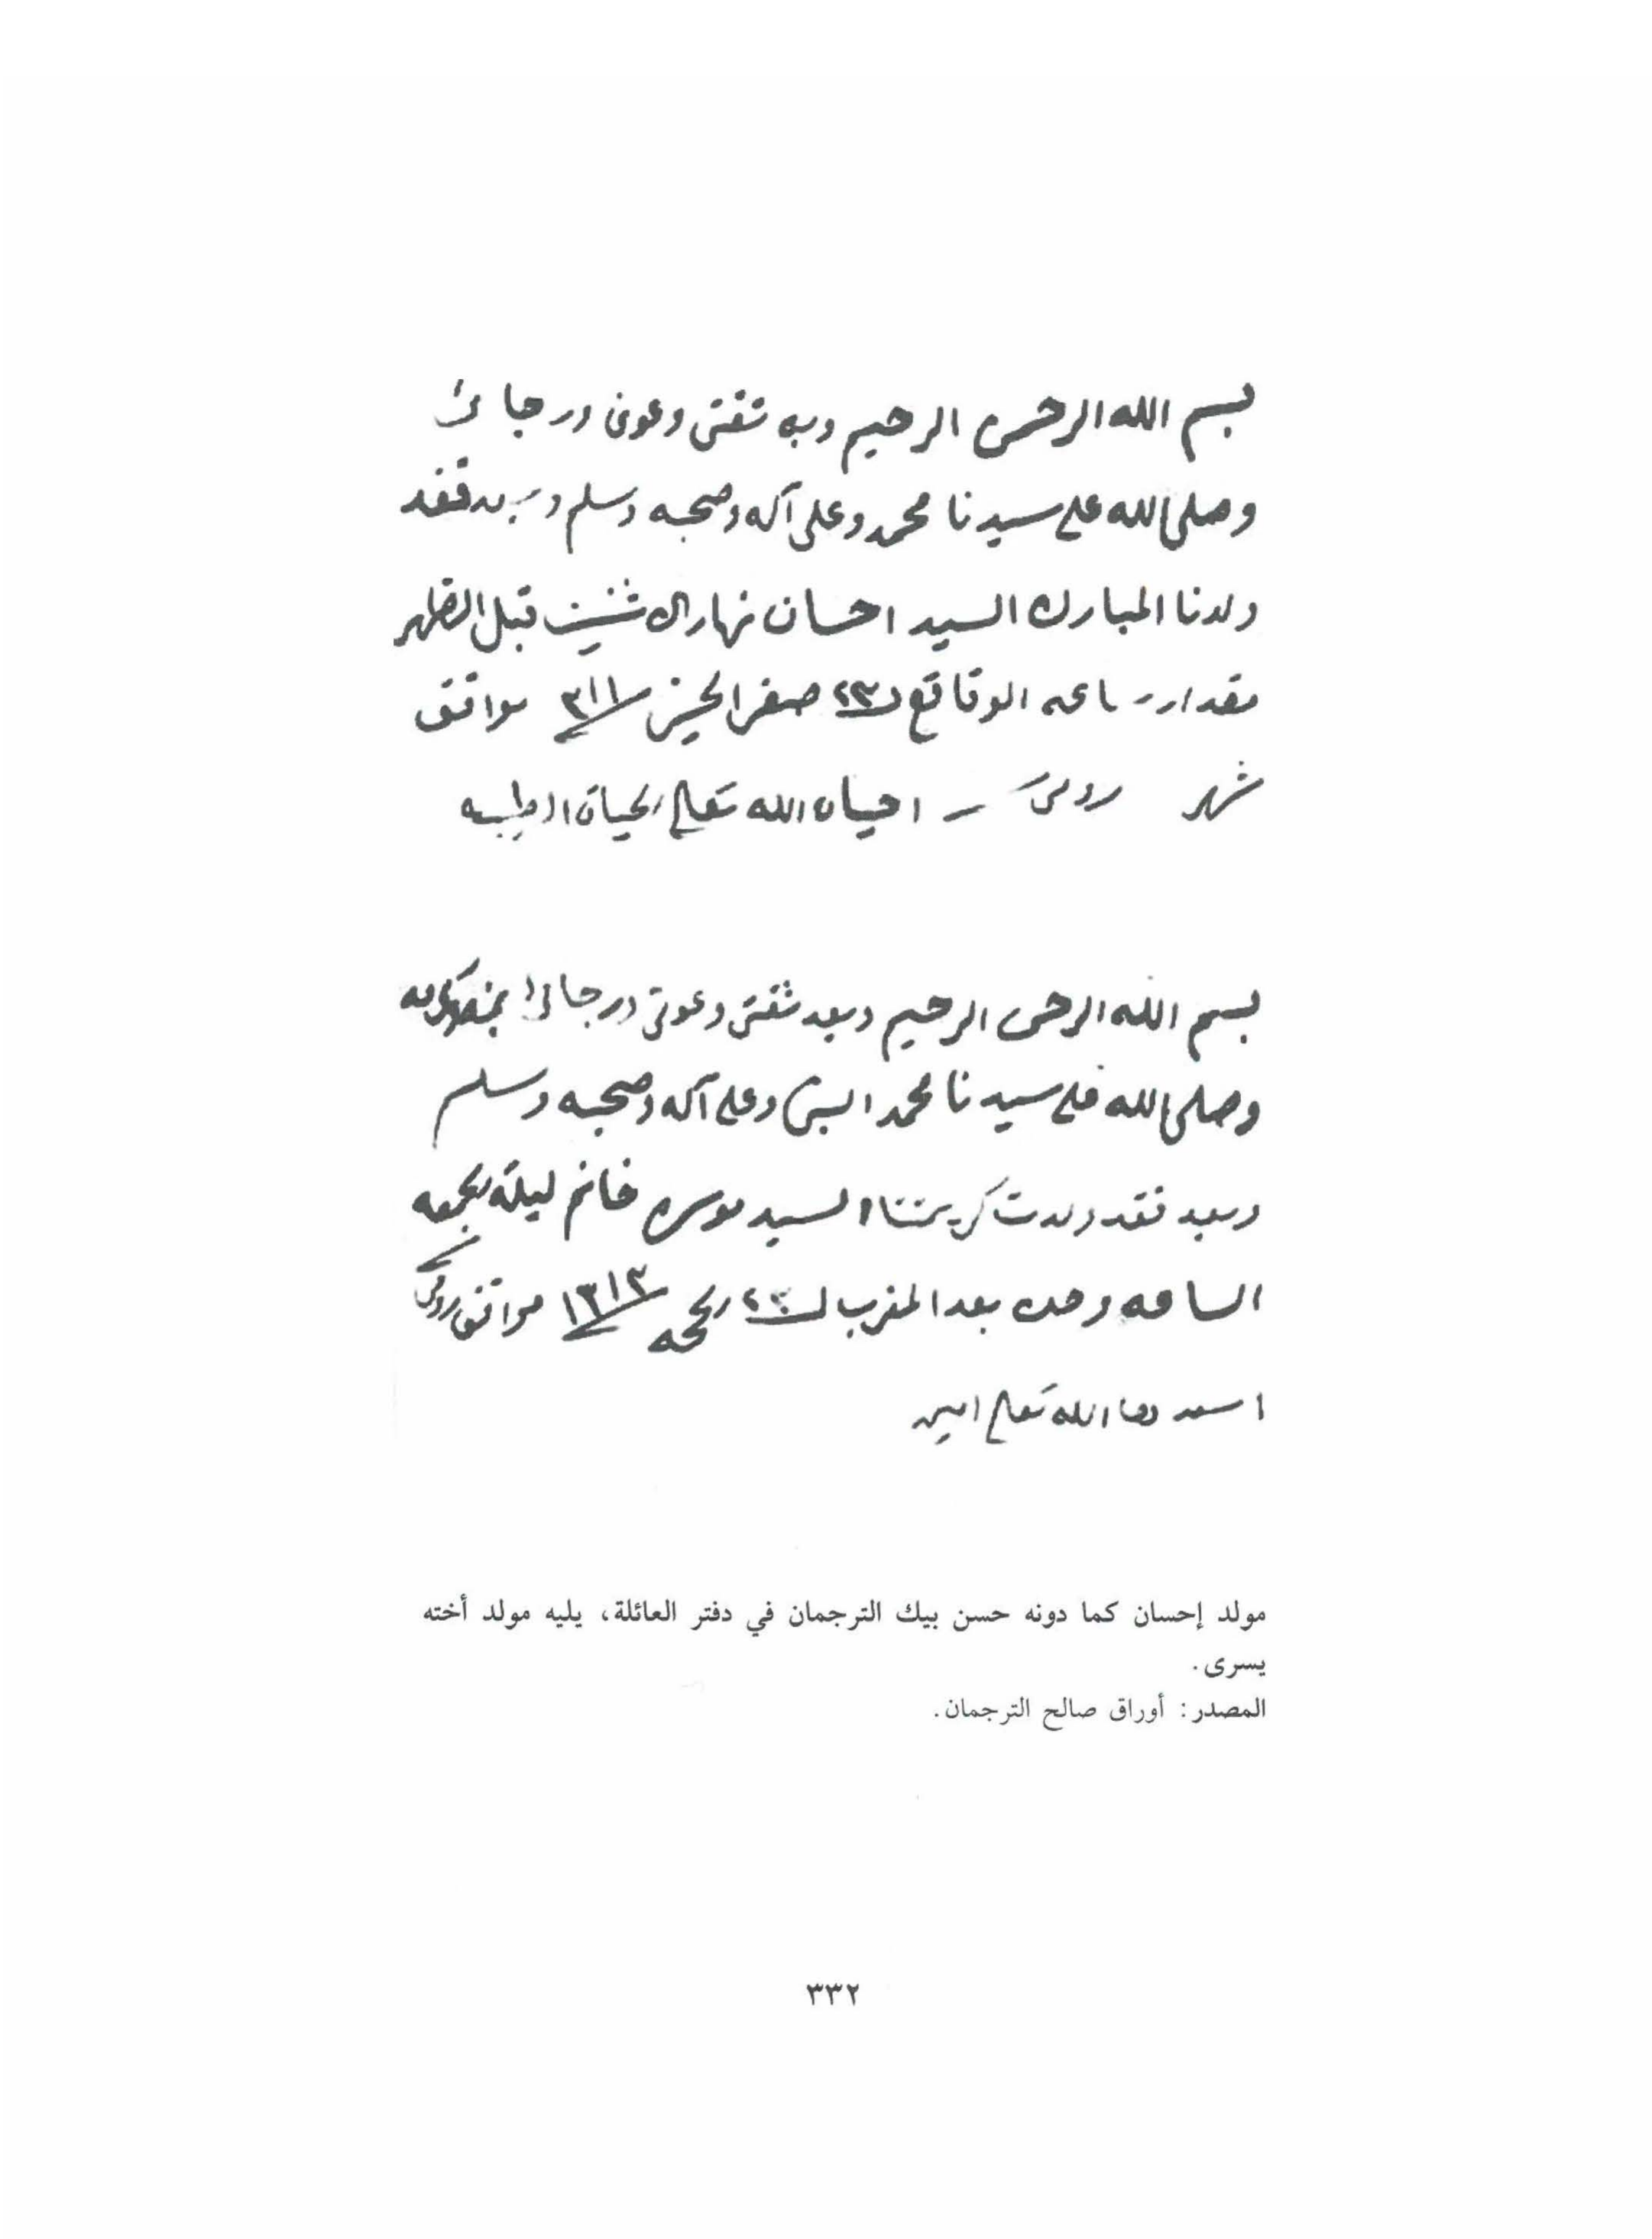 بسم الله الرحمن الرحيم وبه ثقتي وعوني ورجائي
وصلى الله على سيدنا محمد وعلى آله وصحبه وسلم وبعد فقد
ولدنا المبارك السيد احسان نهار الاثنين قبل الظهر
مقدار ساعه الوقائع ٢٣ صفر الخير ٣١١ موافق
شهر احياه الله تعالى الحياة الطيبه
بسم الله الرحمن الرحيم وبعد ثقتي وعوني ورجائي
وصلى الله على سيدنا محمد النبي وعلى آله وصحبه وسلم
وبعد فقد ولدت كريمتنا السيد يوسره خانم ليلة الجمعه
الساعه وحده بعد المغرب الحجه ١٣١٣ موافق
اسعدها الله تعالى امين
مولد إحسان كما دونه حسن بيك الترجمان في دفتر العائلة، يليه مولد أخته
يسرى.
المصدر: أوراق صالح الترجمان.
٣٣٢